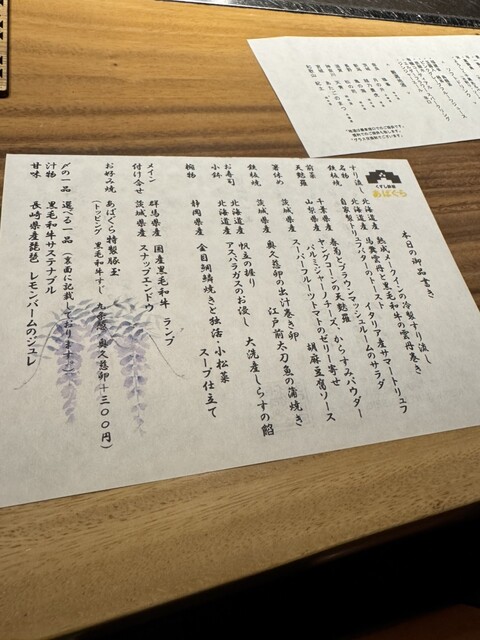 くずし鉄板
あばぐら
本日の御品書き
すり流し 北海道産 熟成メークインの冷製すり流し
名物 北海道産 馬糞雲丹と黒毛和牛の雲丹巻き
鉄板焼 自家製トリュフバターのトースト イタリア産サマートリュフ
千葉県産 春菊とブラウンマッシュルームのサラダ
パルミジャーノチーズ、からすみパウダー
前菜 山梨県産 スーパーフルーツトマトのゼリー寄せ 胡麻豆腐ソース
天麩羅 茨城県産 ヤングコーンの天麩羅
箸休め 茨城県産 奥久慈卵の出汁巻き卵
鉄板焼 江戸前太刀魚の蒲焼き
お寿司 北海道産 帆立の握り
小鉢 北海道産 アスパラガスのお浸し 大洗産しらすの餡
椀物 静岡県産 金目鯛鱗焼きと独活・小松菜
スープ仕立て
メイン 群馬県産 国産黒毛和牛 ランプ
付け合せ 茨城県産 スナップエンドウ
お好み焼 あばぐら特製豚玉
(トッピング 黒毛和牛すじ、九条葱、奥久慈卵+三〇〇円)
〆の一品 選べる一品(裏面に記載しております!)
汁物 黒毛和牛サステナブル
甘味 長崎県産琵琶 レモンバームのジュレ